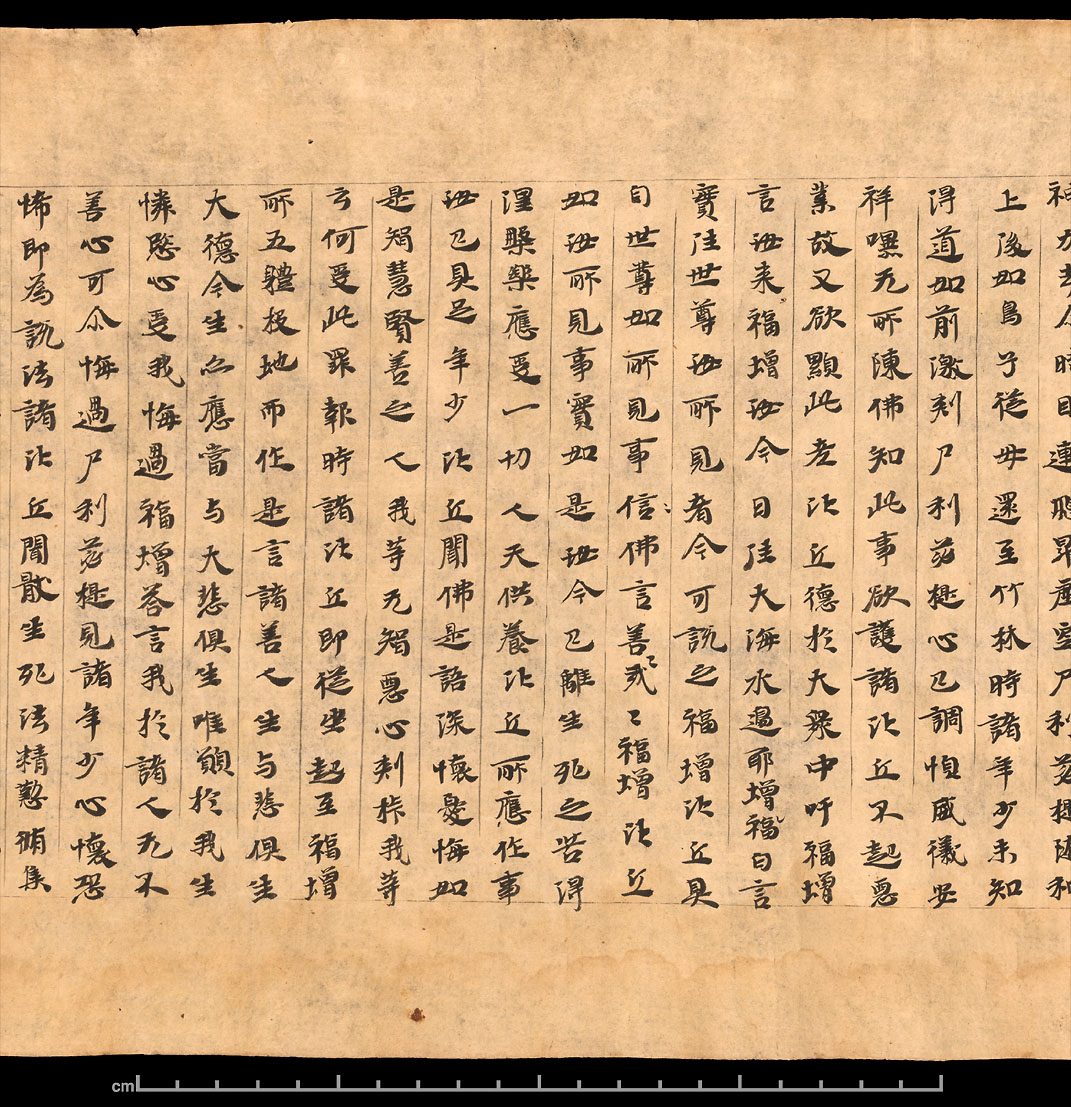 神力去尒時目連騰昇虛空尸利苾提隨和
上後如鳥子從母還至竹林時諸年少未知
得道如前激刾尸利苾提心已調恒威儀安
祥嘿无所陳佛知此事欲護諸比丘不起惡
業故又欲顯此老比丘德於大衆中吁福增
言汝来福增汝今日往大海水邊耶增福白言
實往世尊汝所見者今可說之福增比丘具
白世尊如所見事信佛言善〻哉〻福增比丘
如汝所見事實如是汝今已離生死之苦得
涅槃樂應受一切人天供養比丘所應作事
汝已具足年少比丘聞佛是語深懷憂悔如
是智慧賢善之人我等无智惡心刾我等
云何受此罪報時諸比丘即從坐起至福增
所五體投地而作是言諸善人生与悲俱生
大德今生亦應當与大悲俱生唯願於我生
憐愍心受我悔過福增答言我於諸人无不
善心可尒悔過尸利苾提見諸年少心懷恐
怖即為說法諸比丘聞猒生死法精懃脩集
cm